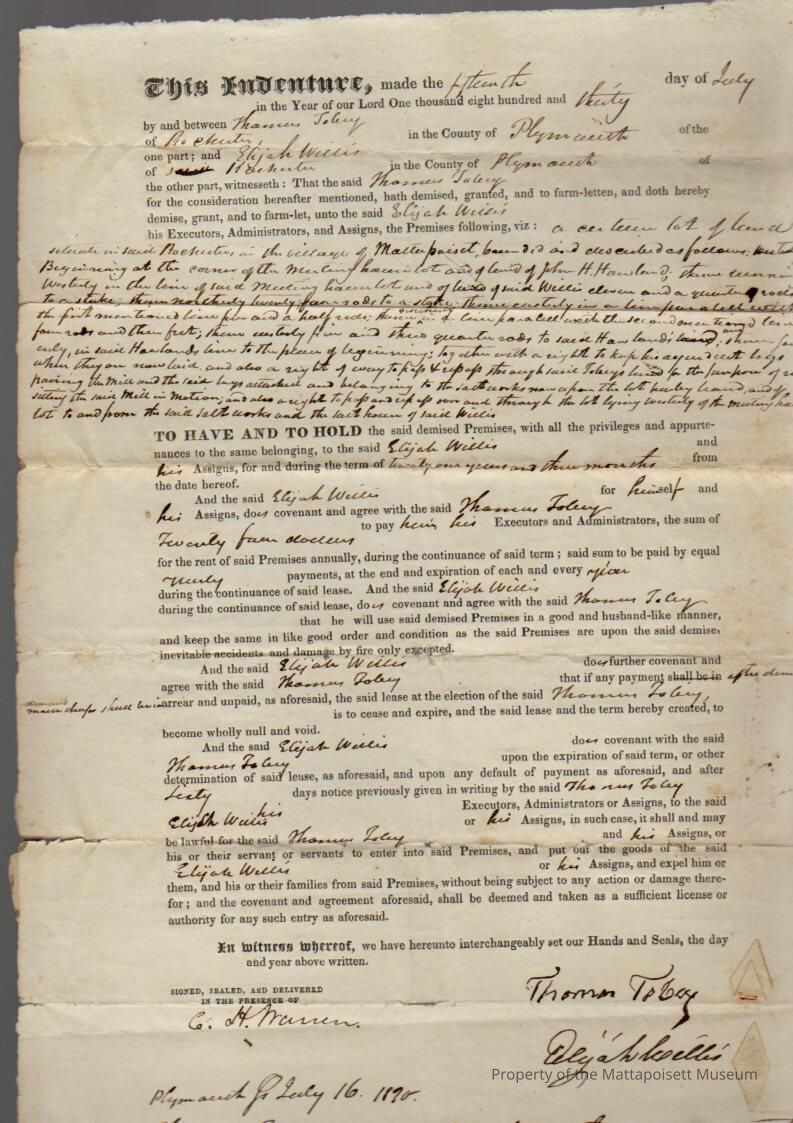 This Indenture, made the fifteenth day of July
in the Year of our Lord One thousand eight hundred and thirty
by and between Thomas Tobey
of Rochester, in the County of Plymouth of the
one part; and Elijah Willis
of Rochester in the County of Plymouth of
the other part, witnesseth: That the said Thomas Tobey
for the consideration hereafter mentioned, hath demised, granted, and to farm-letten, and doth hereby
demise, grant, and to farm-let, unto the said Elijah Willis
his Executors, Administrators, and Assigns, the Premises following, viz: a certain lot of land
situate in said Rochester in the village of Mattapoiset, bounded and described as follows,
Beginning at the corner of the Meeting house lot and of land of John H. Howland; thence
Westerly in the line of said Meeting house lot and of land of said Willis eleven and a quarter rods
to a stake; thence northerly twenty four rods to a stake; thence easterly in a line parallel with
the first mentioned line five and a half rods; thence in a line parallel with the second mentioned line
four rods and then feet; thence easterly five and three quarter rods to said Howlands land; thence
erly, in said Howlands line to the place of beginning; together with a right to keep his aqueduct logs
where they are now laid, and also a right of way to pass & repass through said Tobeys land for the purpose of
pairing the Mill and the said logs attached and belonging to the salt works now upon the lot hereby leased, and of
setting the said Mill in Motion; and also a right to pass and repass over and through the lot lying Westerly of the meeting
lot to and from the said salt works and the salt house of said Willis
TO HAVE AND TO HOLD the said demised Premises, with all the privileges and appurte-
nances to the same belonging, to the said Elijah Willis and
his Assigns, for and during the term of twenty one years and three months from
the date hereof.
And the said Elijah Willis for himself and
his Assigns, does covenant and agree with the said Thomas Tobey
to pay him, his Executors and Administrators, the sum of
Twenty four dollars
for the rent of said Premises annually, during the continuance of said term; said sum to be paid by equal
yearly payments, at the end and expiration of each and every year
during the continuance of said lease. And the said Elijah Willis
during the continuance of said lease, does covenant and agree with the said Thomas Tobey
that he will use said demised Premises in a good and husband-like manner,
and keep the same in like good order and condition as the said Premises are upon the said demise,
inevitable accidents and damage by fire only excepted.
And the said Elijah Willis does further covenant and
agree with the said Thomas Tobey that if any payment shall be in after
demand shall be in arrear and unpaid, as aforesaid, the said lease at the election of the said Thomas Tobey,
is to cease and expire, and the said lease and the term hereby created, to
become wholly null and void.
And the said Elijah Willis does covenant with the said
Thomas Tobey upon the expiration of said term, or other
determination of said lease, as aforesaid, and upon any default of payment as aforesaid, and after
Sixty days notice previously given in writing by the said Thomas Tobey
his Executors, Administrators or Assigns, to the said
Elijah Willis or his Assigns, in such case, it shall and may
be lawful for the said Thomas Tobey and his Assigns, or
his or their servant or servants to enter into said Premises, and put out the goods of the said
Elijah Willis or his Assigns, and expel him or
them, and his or their families from said Premises, without being subject to any action or damage there-
for; and the covenant and agreement aforesaid, shall be deemed and taken as a sufficient license or
authority for any such entry as aforesaid.
In witness whereof, we have hereunto interchangeably set our Hands and Seals, the day
and year above written.
SIGNED, SEALED, AND DELIVERED
IN THE PRESENCE OF
C. H. Warren.
Thomas Tobey
Elijah Willis
Property of the Mattapoisett Museum
Plymouth Ss July 16. 1830.